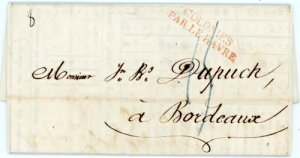 8
COLONIES
PAR LE HAVRE
Monsieur Jn. Bte. Dupuch,
à Bordeaux